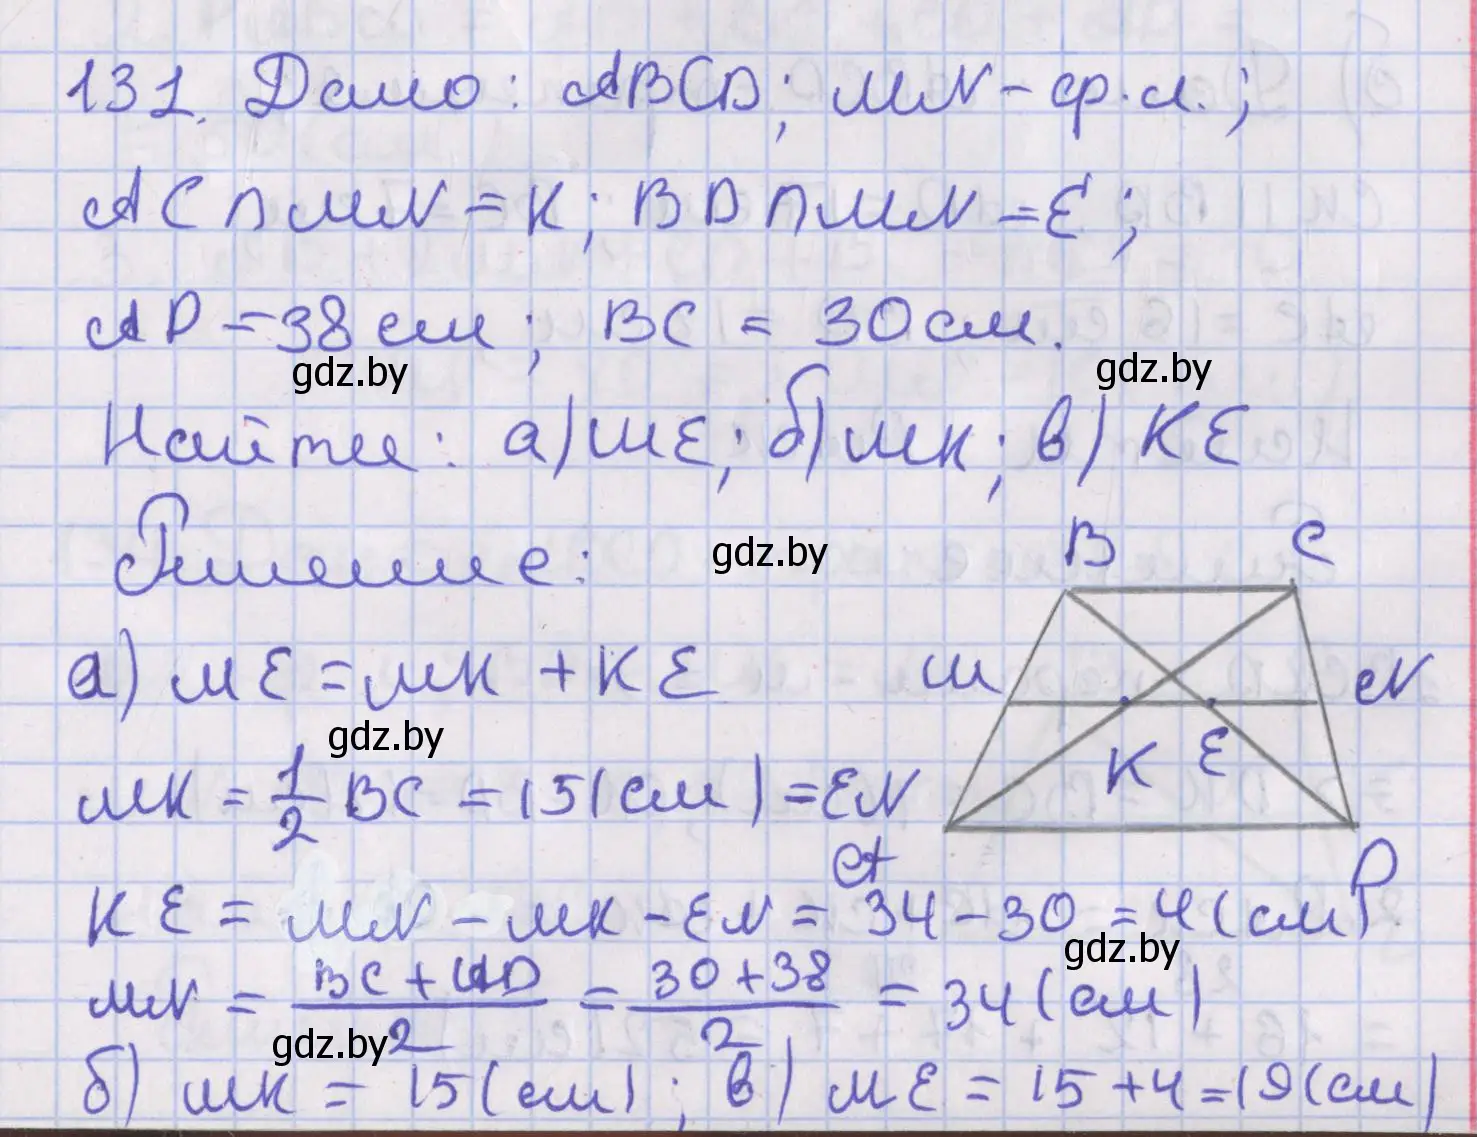 131. Дано: ABCD; MN - ср. л.;
AC ∩ MN = K; BD ∩ MN = E;
AD = 38 см; BC = 30 см.
gdz.by gdz.by
Найти: а) ME; б) MK; в) KE
Решение:
gdz.by
B C
а) ME = MK + KE
M N
gdz.by
K E
MK = 1/2 BC = 15 (см) = EN
A D
KE = MN - MK - EN = 34 - 30 = 4 (см)
gdz.by
MN = (BC + AD)/2 = (30 + 38)/2 = 34 (см)
gdz.by
б) MK = 15 (см); в) ME = 15 + 4 = 19 (см)